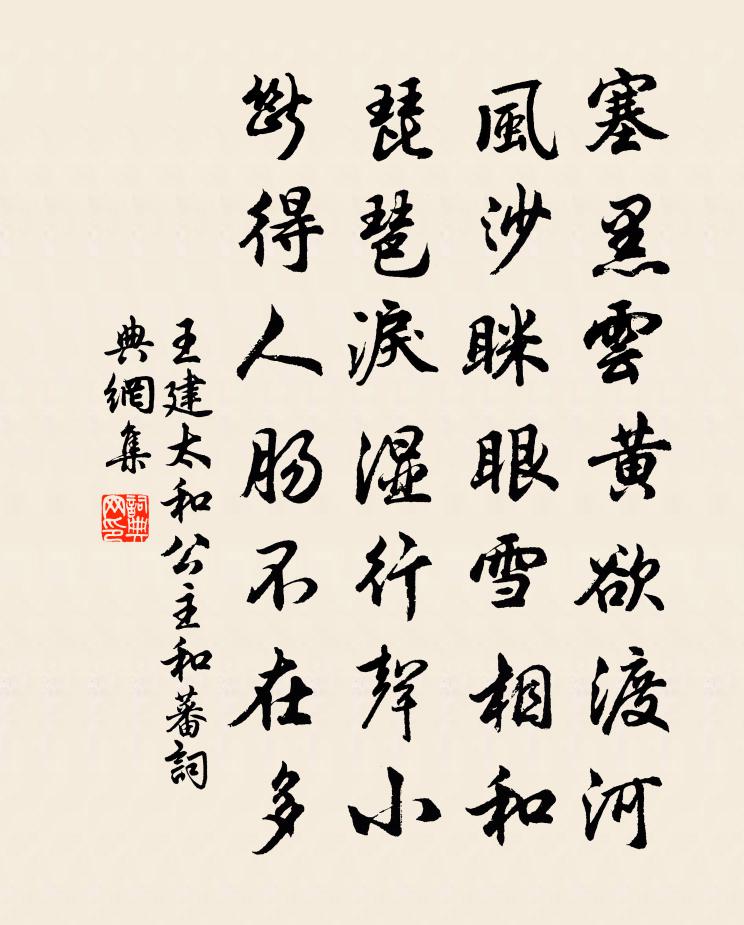 塞黑雲黄欲渡河
風沙眯眼雪相和
琵琶淚湿行聲小
斷得人肠不在多
王建太和公主和蕃詞
典網集
詞典網印